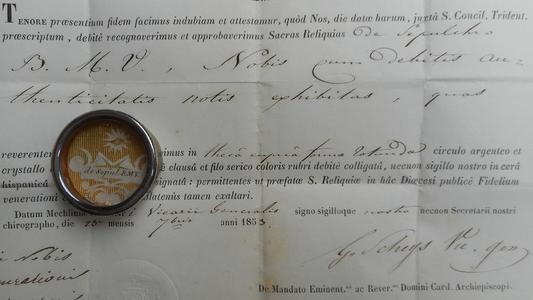 TENORE præsentium fidem facimus indubiam et attestamur, quòd Nos, die datæ harum, juxtà S. Concil. Trident.
præscriptum, debitè recognoverimus et approbaverimus Sacras Reliquias de Sepulchro
B. M. V., Nobis cum debitis au=
thenticitatis notis exhibitas, quas
reverenter imus in thecâ cupreâ formæ rotundæ circulo argenteo et
crystallo è clausâ et filo serico coloris rubri debitè colligatâ, necnon sigillo nostro in cerâ
hispanicâ signatâ: permittentes ut præfatæ S. Reliquiæ in hâc Diœcesi publicè Fidelium
venerationi latenùs tamen exaltari.
de Sepul. B.M.V.
Datum Mechliniæ Vicarii Generalis signo sigilloque nostro necnon Secretarii nostri
chirographo, die 15 mensis 7bris anni 1853.
Nobis
G. Scheys Vic. gen.
De Mandato Eminent.mi ac Rever.mi Domini Card. Archiepiscopi.